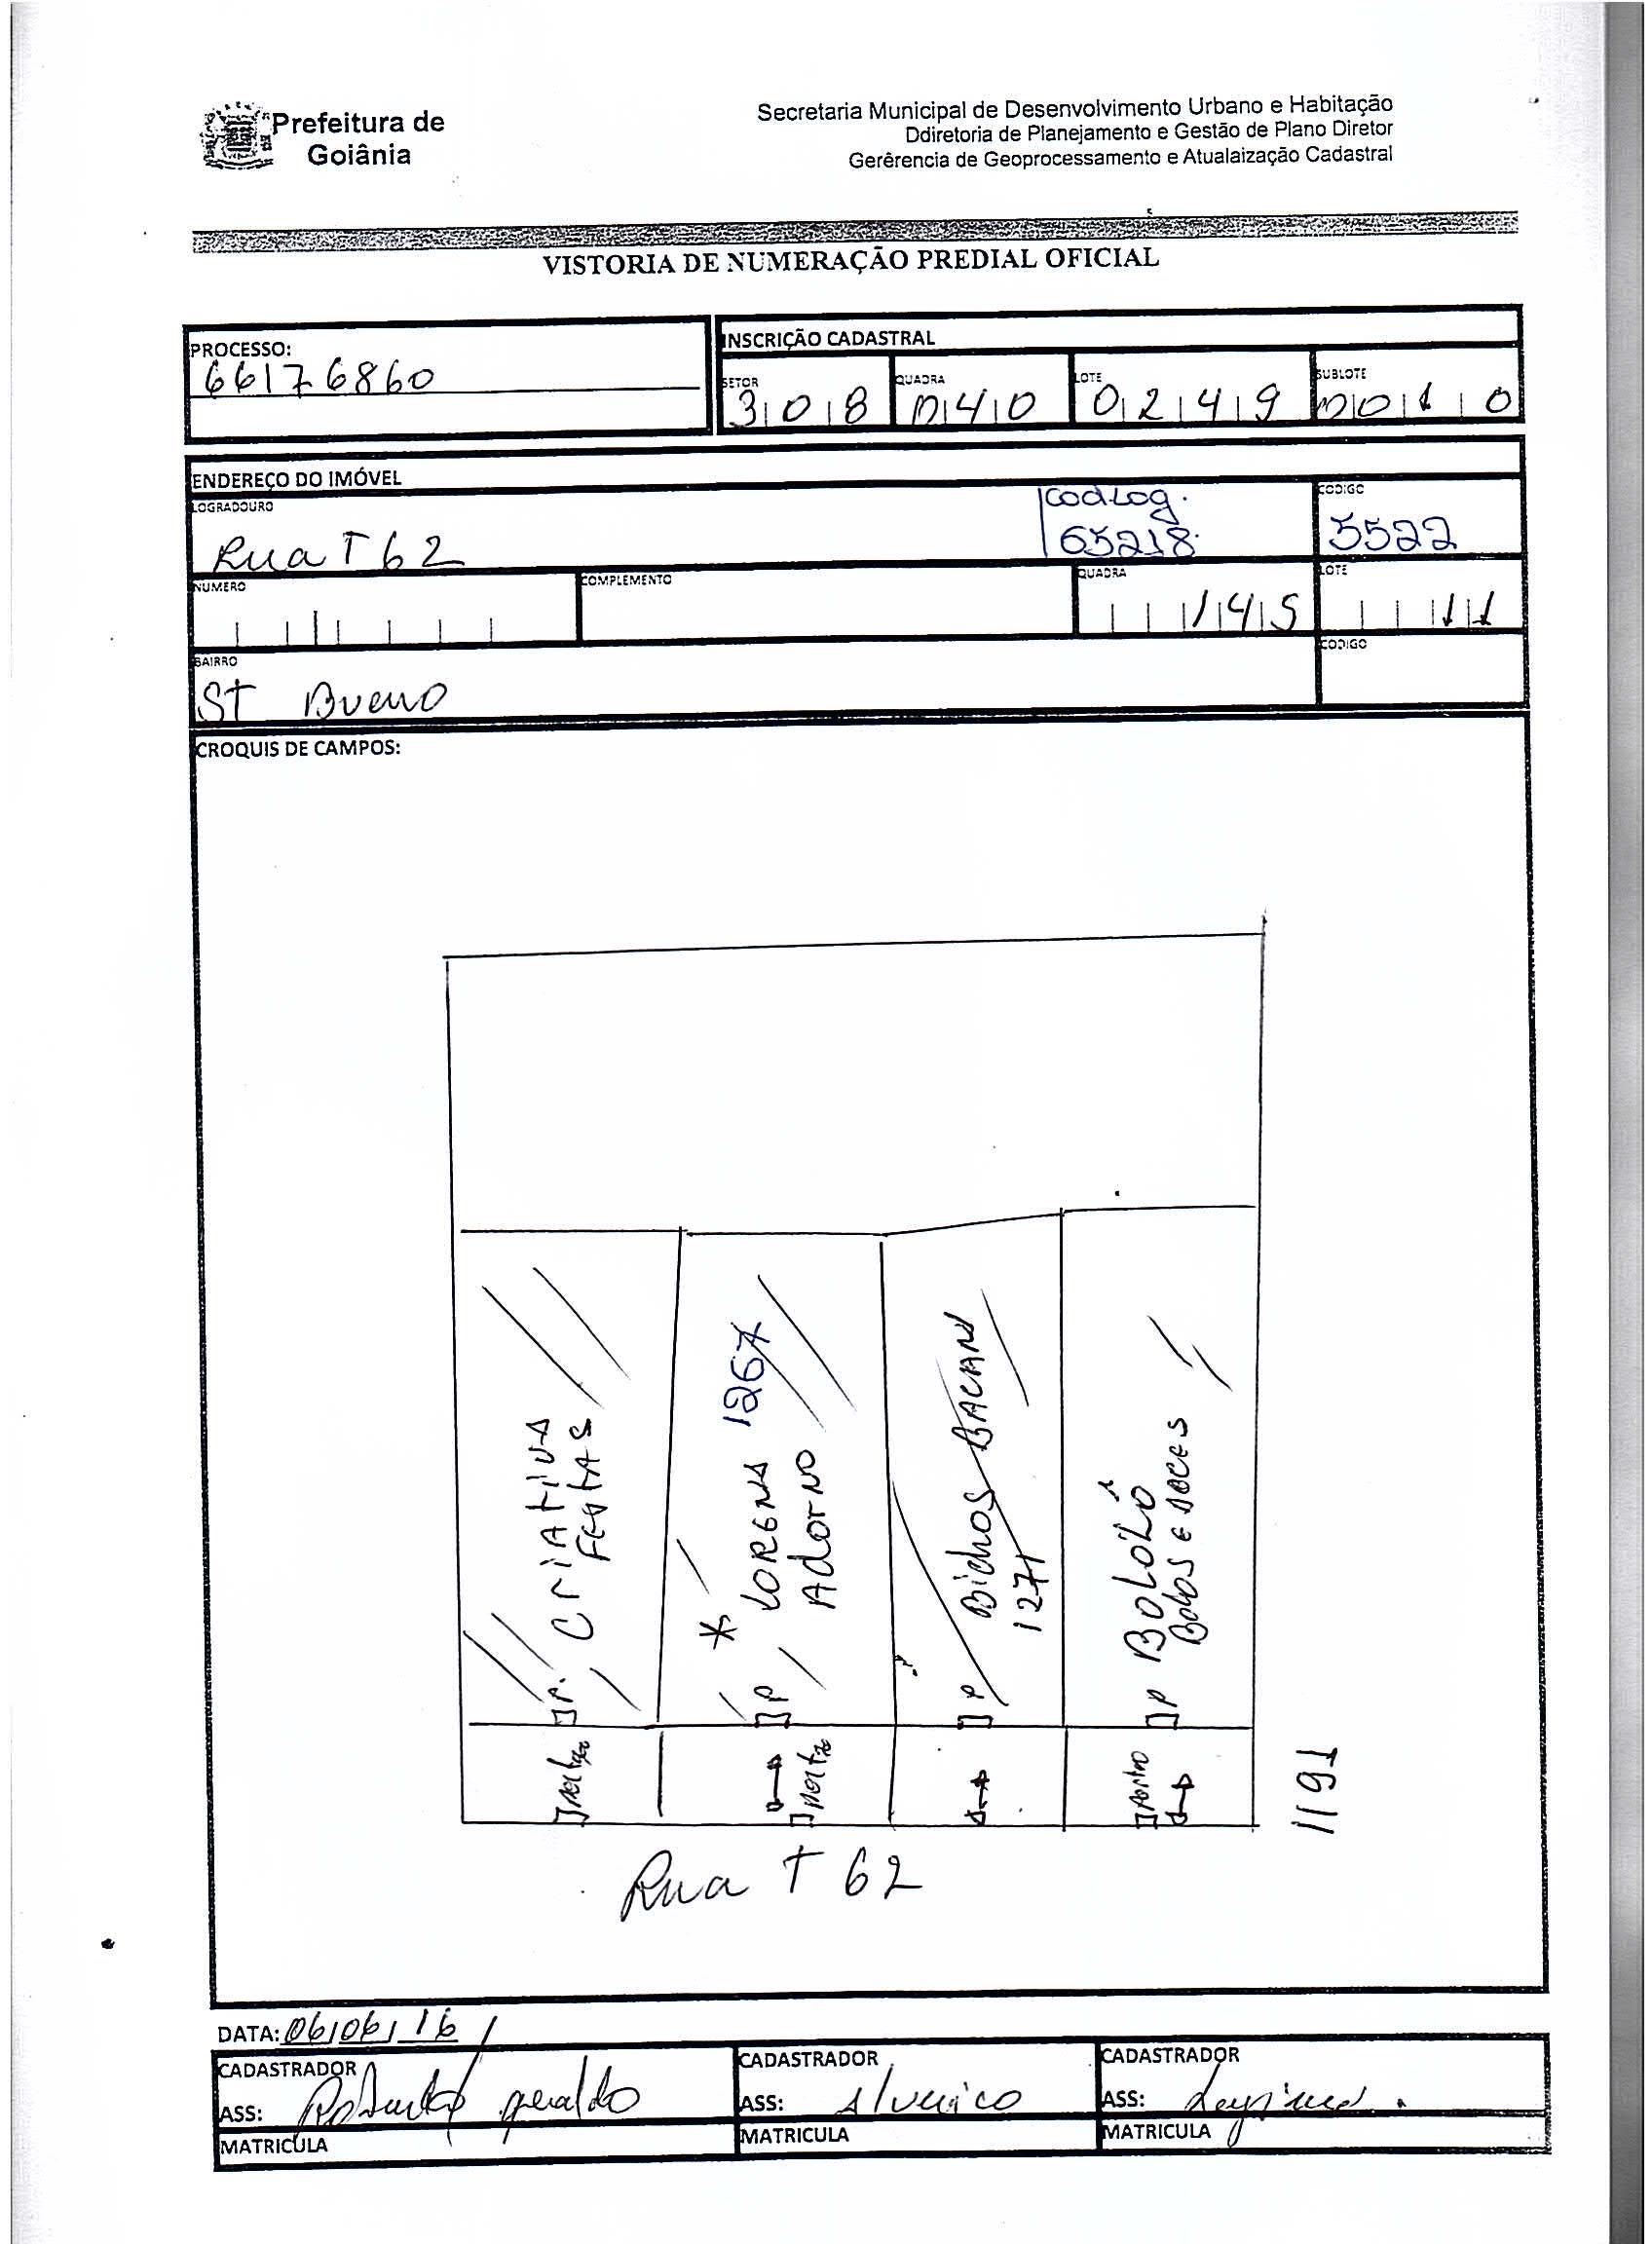 Prefeitura de
Goiânia
Secretaria Municipal de Desenvolvimento Urbano e Habitação
Ddiretoria de Planejamento e Gestão de Plano Diretor
Gerêrencia de Geoprocessamento e Atualaização Cadastral
VISTORIA DE NUMERAÇÃO PREDIAL OFICIAL
PROCESSO:
66176860
INSCRIÇÃO CADASTRAL
SETOR QUADRA LOTE SUBLOTE
308 040 0249 0010
ENDEREÇO DO IMÓVEL
LOGRADOURO CODIGO
Rua T 62 CodLog. 65218. 5522
NUMERO COMPLEMENTO QUADRA LOTE
145 11
BAIRRO CODIGO
ST Bueno
CROQUIS DE CAMPOS:
P. CriAtivA
FestAS
* P LORENA 1267
AdorNO
P Bichos BACANA
1271
P BoLoLô
Bolos e doces
Portão
1191
Rua T 62
DATA: 06/06/16
CADASTRADOR CADASTRADOR CADASTRADOR
ASS: Roberto geraldo ASS: ASS:
MATRICULA MATRICULA MATRICULA